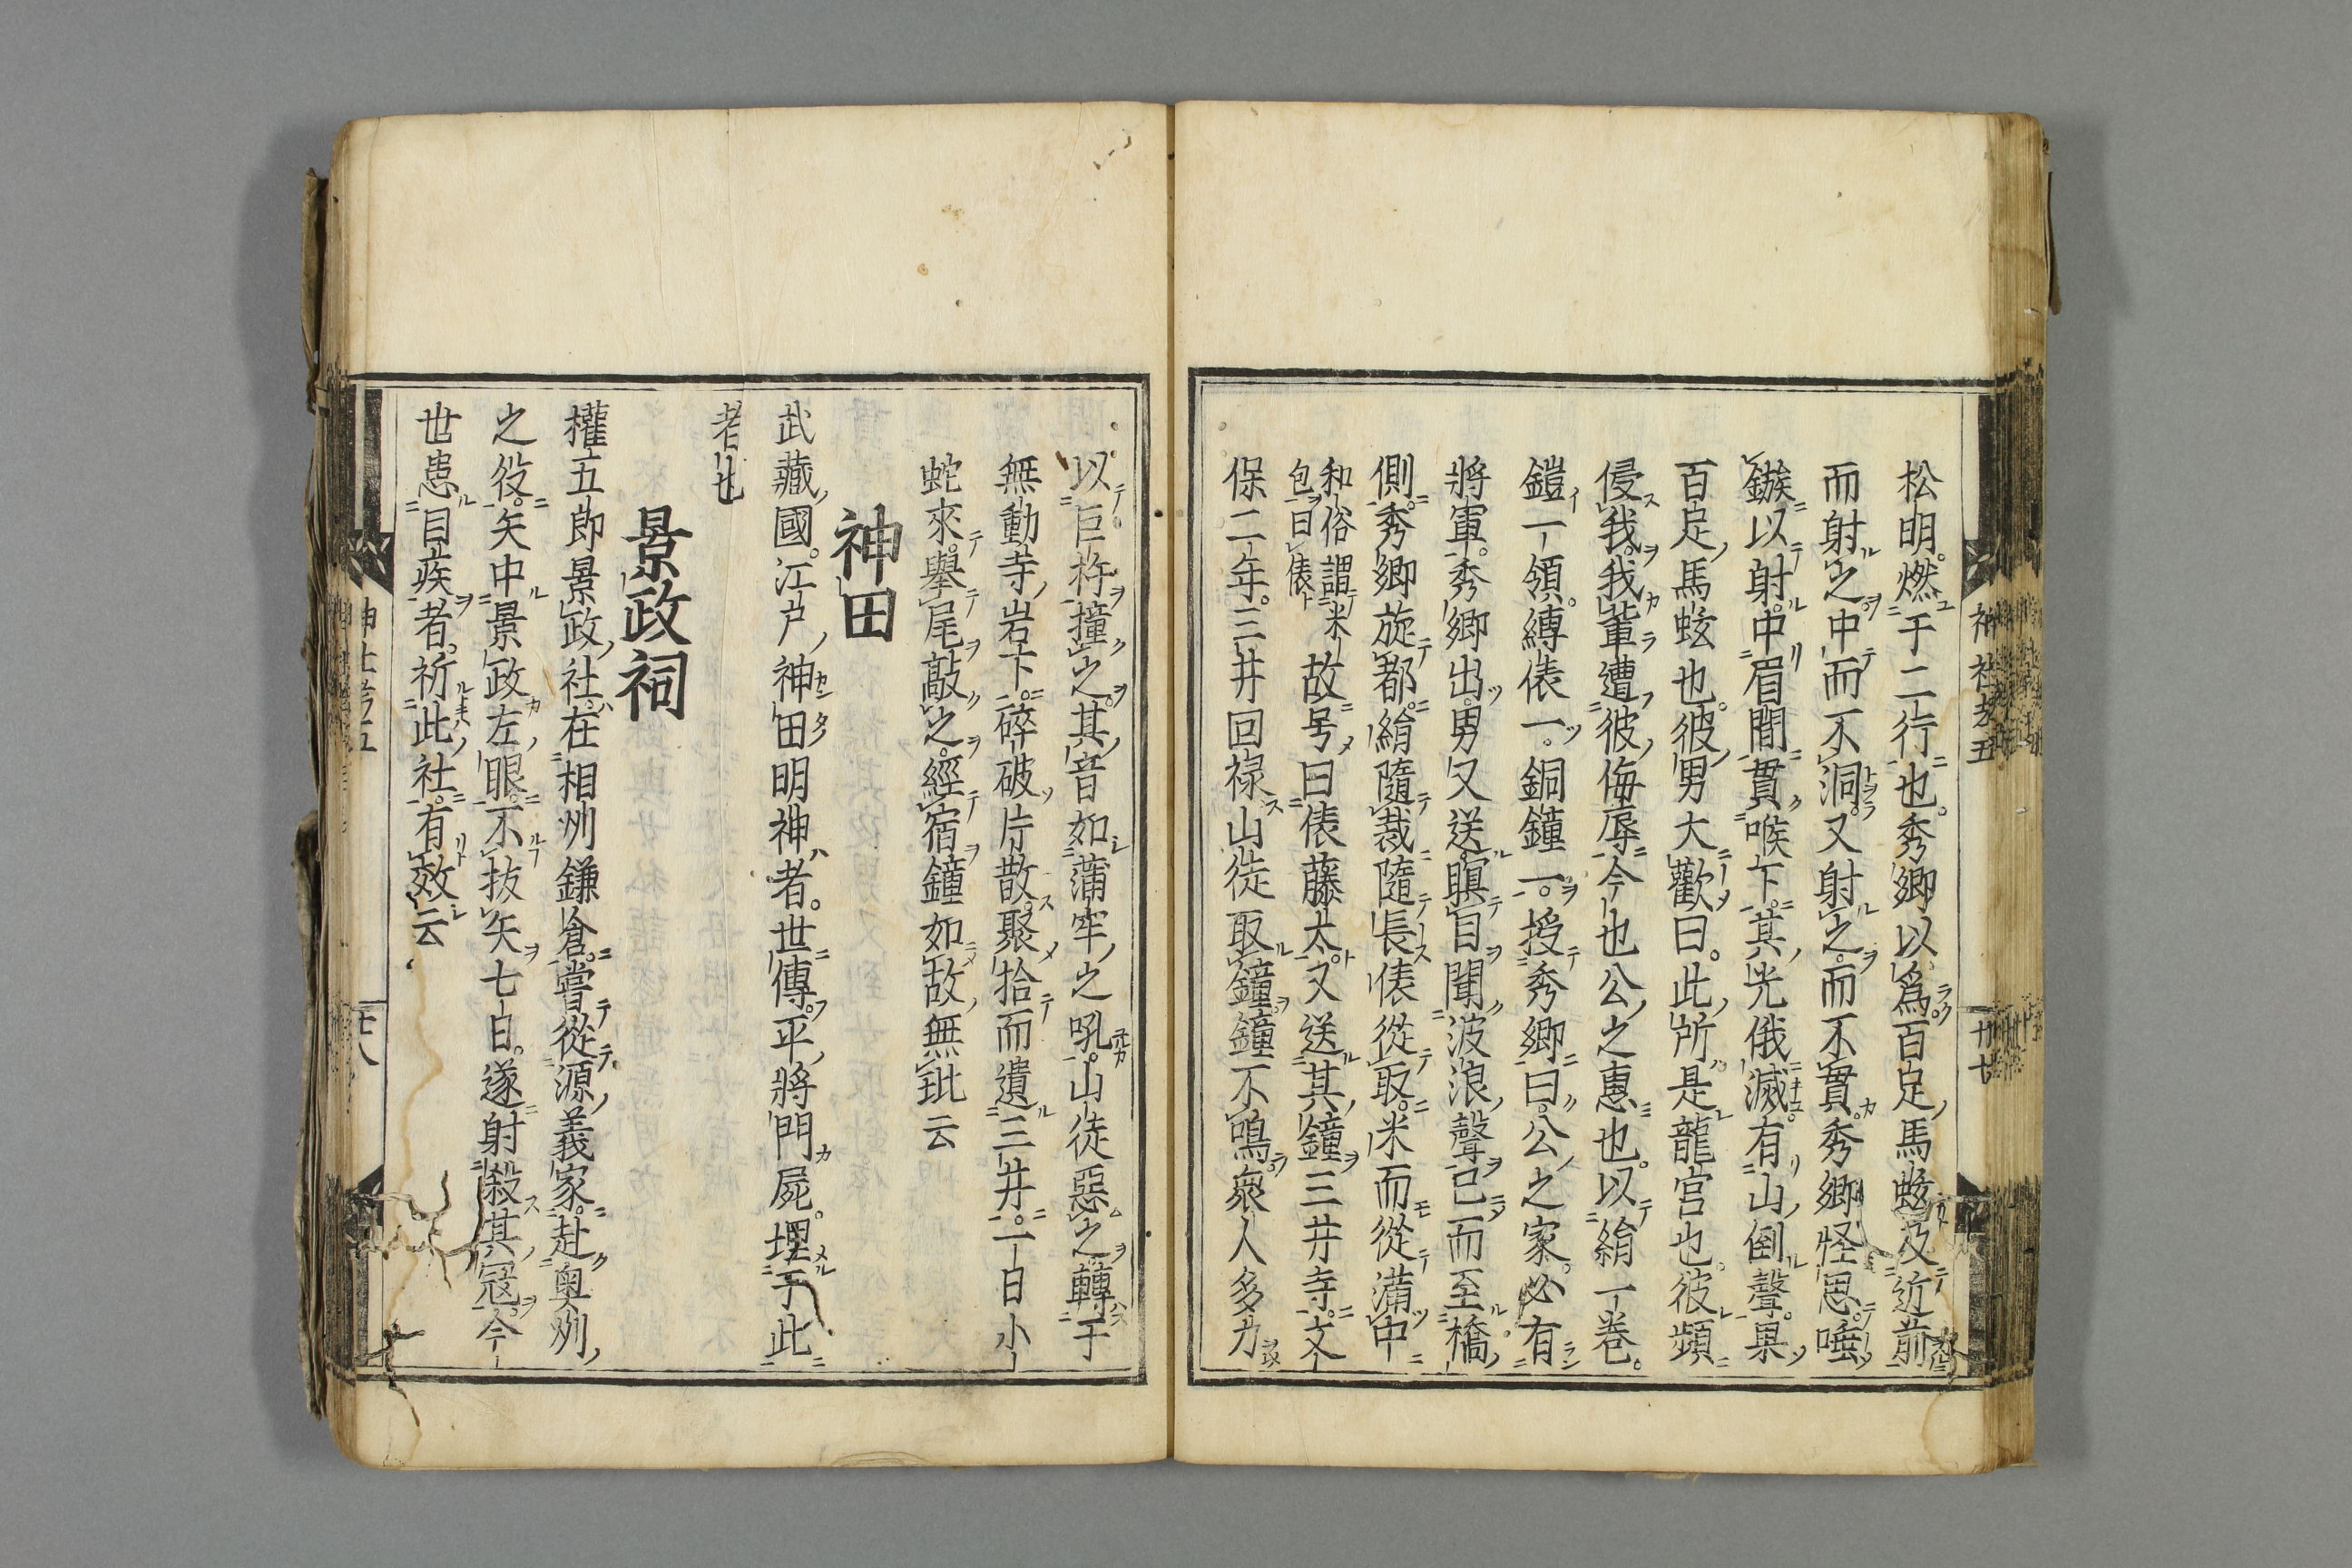 松明燃于二行也秀卿以爲百足馬蚿及近前
而射之中而不洞又射之而不貫秀卿怪思唾
鏃以射中眉間貫喉下其光俄滅有山倒聲果
百足馬蚿也彼男大歡曰此所是龍宮也彼頻
侵我我輩遭彼侮辱今也公之惠也以絹一巻
鎧一領縳俵一銅鐘一授秀卿曰公之家必有
將軍秀卿出男又送瞑目聞波浪聲已而至橋
側秀卿旋都絹隨裁隨長俵從取米而從滿中
和俗謂米
包曰俵
故号曰俵藤太又送其鐘三井寺文
保二年三井回禄山徒取鐘鐘不鳴衆人多力
神社考五
卅七
以巨杵撞之其音如蒲牢之吼山徒惡之轉于
無動寺岩下碎破片散聚拾而遺三井一日小
蛇來擧尾敲之經宿鐘如故無玼云
神田
武藏國江户神田明神者世傳平將門屍埋于此
者也
景政祠
權五郎景政社在相州鎌倉嘗從源義家赴奥州
之役矢中景政左眼不抜矢七日遂射殺其冦今
世患目疾者祈此社有效云
神社考五